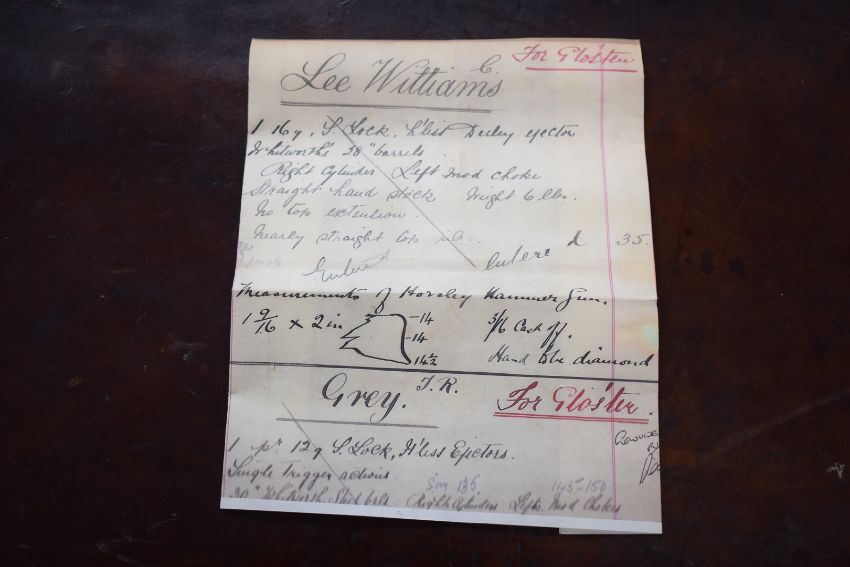 For Glo'ster
Lee Williams C.
1 16g, S Lock, h'less Deeley ejector
Whitworth's 28" barrels.
Right Cylinder Left Mod choke
Straight hand stock Weight 6 lbs.
No top extention.
Nearly straight top rib.. £ 35.
Entered
Measurements of Horsley Hammer Gun.
1 9/16 x 2 in -14 3/16 Cast off.
-14
14½ Hand to be diamond
Grey. F. R. For Glo'ster.
1 pr 12g S. Lock, H'less Ejectors.
Single trigger actions. 145-150
30" Right Cylinders Left Mod Chokes